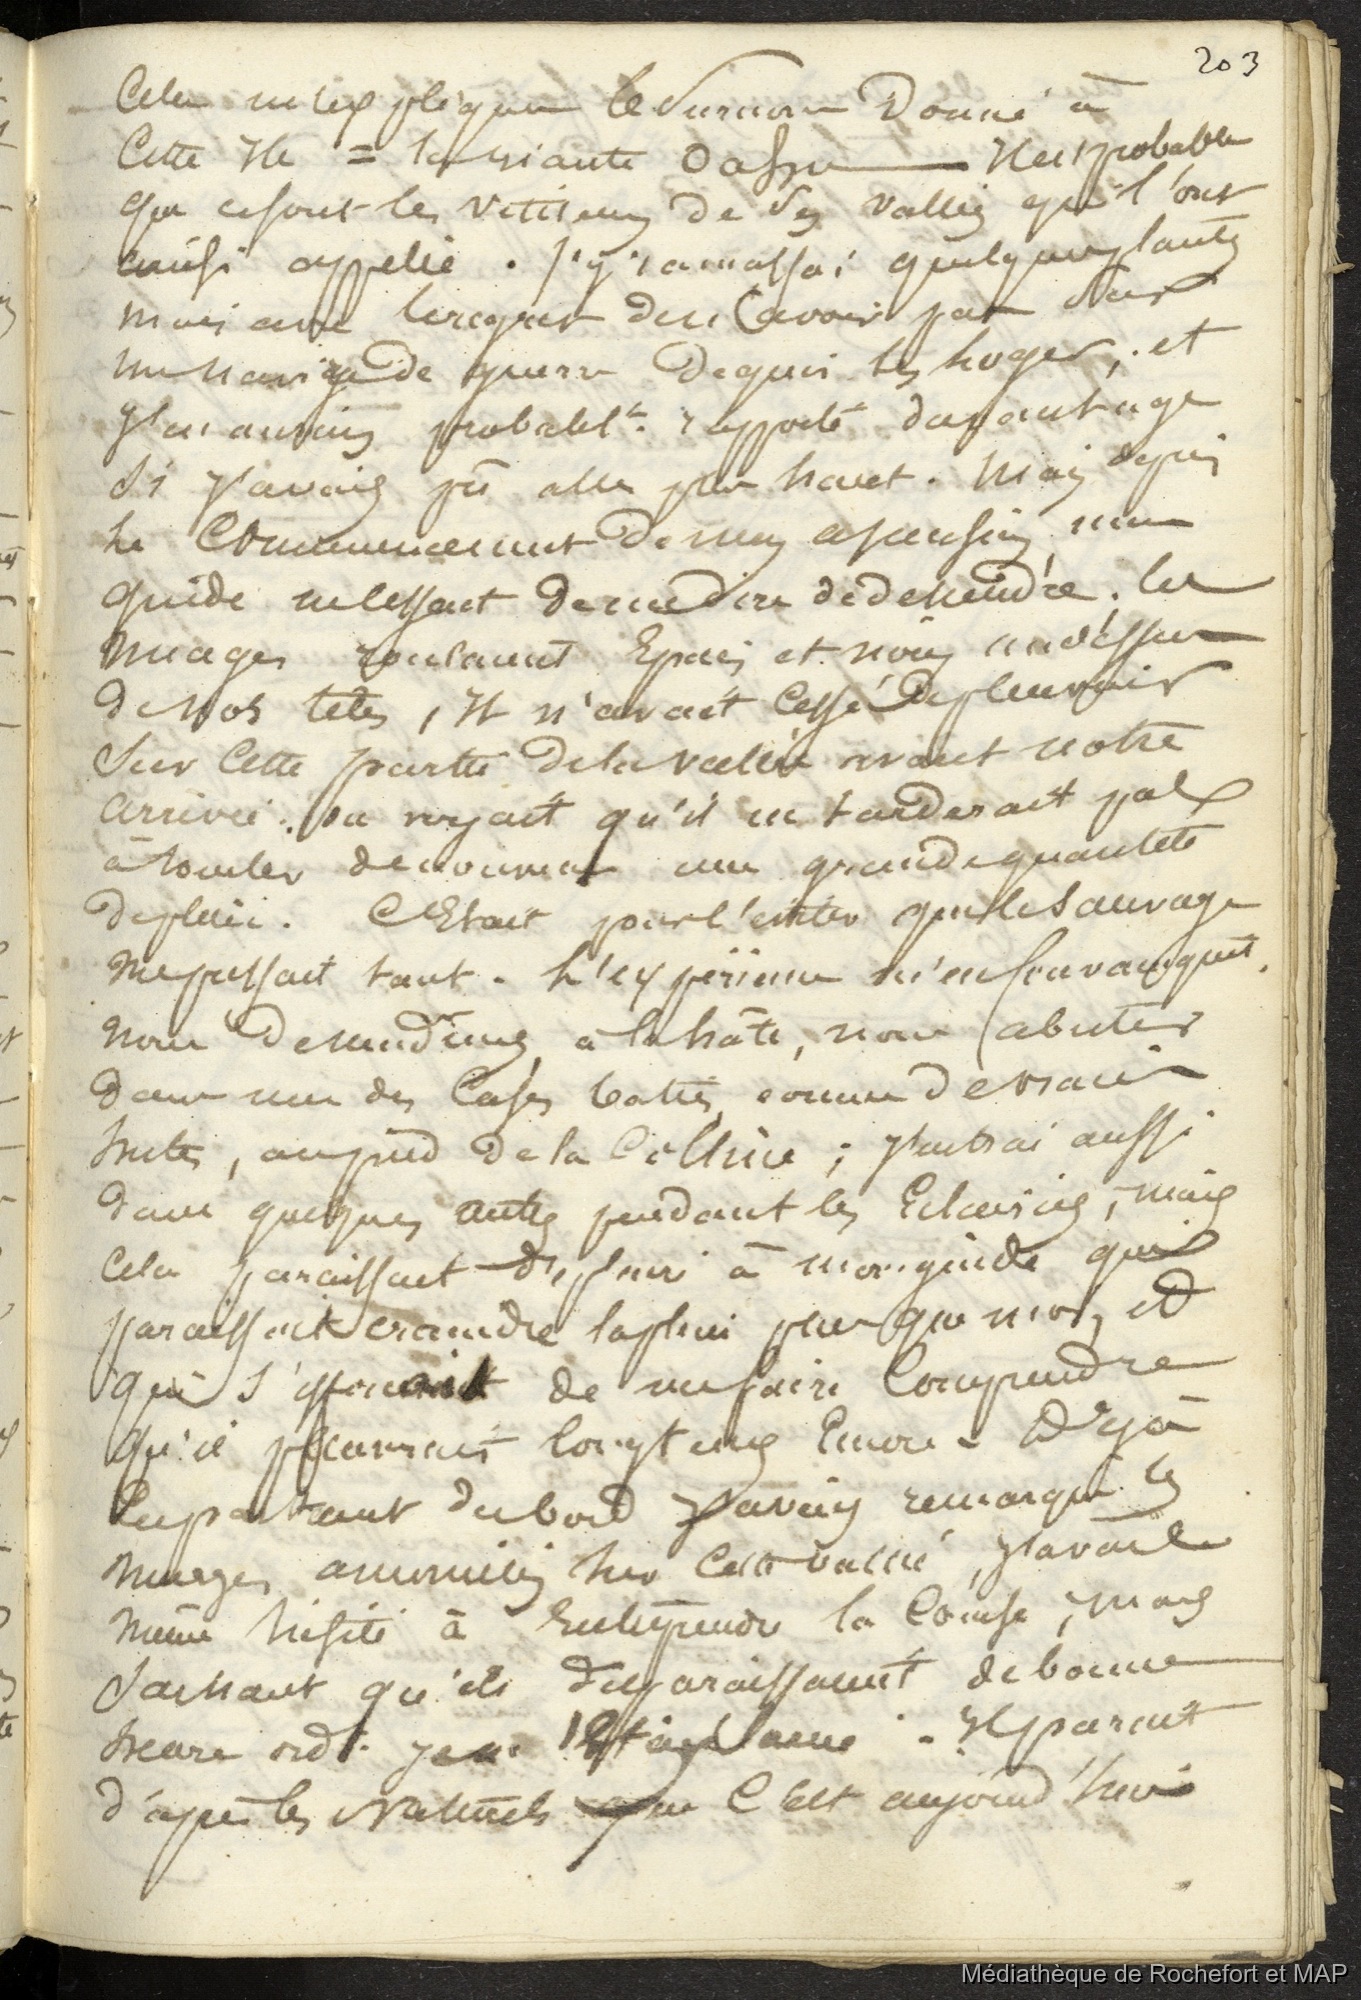 203
Cela m'explique le surnom Donné à
Cette Ile = la riante Oassu Il est probable
que ce sont les visiteurs de ses vallées qui l'ont
ainsi appelée. J'y ramassai quelques plantes
mais avec le regret de n'avoir pas sur
un navire de guerre de quoi les loger, et
j'en aurais probablt. rapporté davantage
Si j'avais pû aller plus haut. Mais depuis
le Commencement de mon ascension, mon
guide ne cessait de me dire de descendre. les
nuages roulaient Epais et noirs au dessus
de nos têtes, Il n'avait Cessé de pleuvoir
Sur Cette partie de la vallée avant notre
arrivée. on voyait qu'il ne tarderait pas
à tomber de nouveau une grande quantité
de pluie. C'Etait pour l'éviter que le Sauvage
me pressait tant. L'expérience m'en convainquit.
nous descendimes à la hâte, nous abriter
dans une des Cases baties comme de vraies
huttes, au pied de la Colline ; j'entrai aussi
dans quelques autres pendant les Eclaircies, mais
cela paraissait déplaire à mon guide qui
paraissait craindre la pluie plus que moi, et
qui s'efforçait de me faire Comprendre
qu'il pleuvrait longtems Encore. Déjà
En partant du bord j'avais remarqué les
nuages amoncelés sur Cette vallée, j'avais
même hésité à Entreprendre la Course ; mais
Sachant qu'ils disparaissaient de bonne
heure ord. je me
. Il parait
d'après les Naturels que C'est aujourd'hui
Médiathèque de Rochefort et MAP